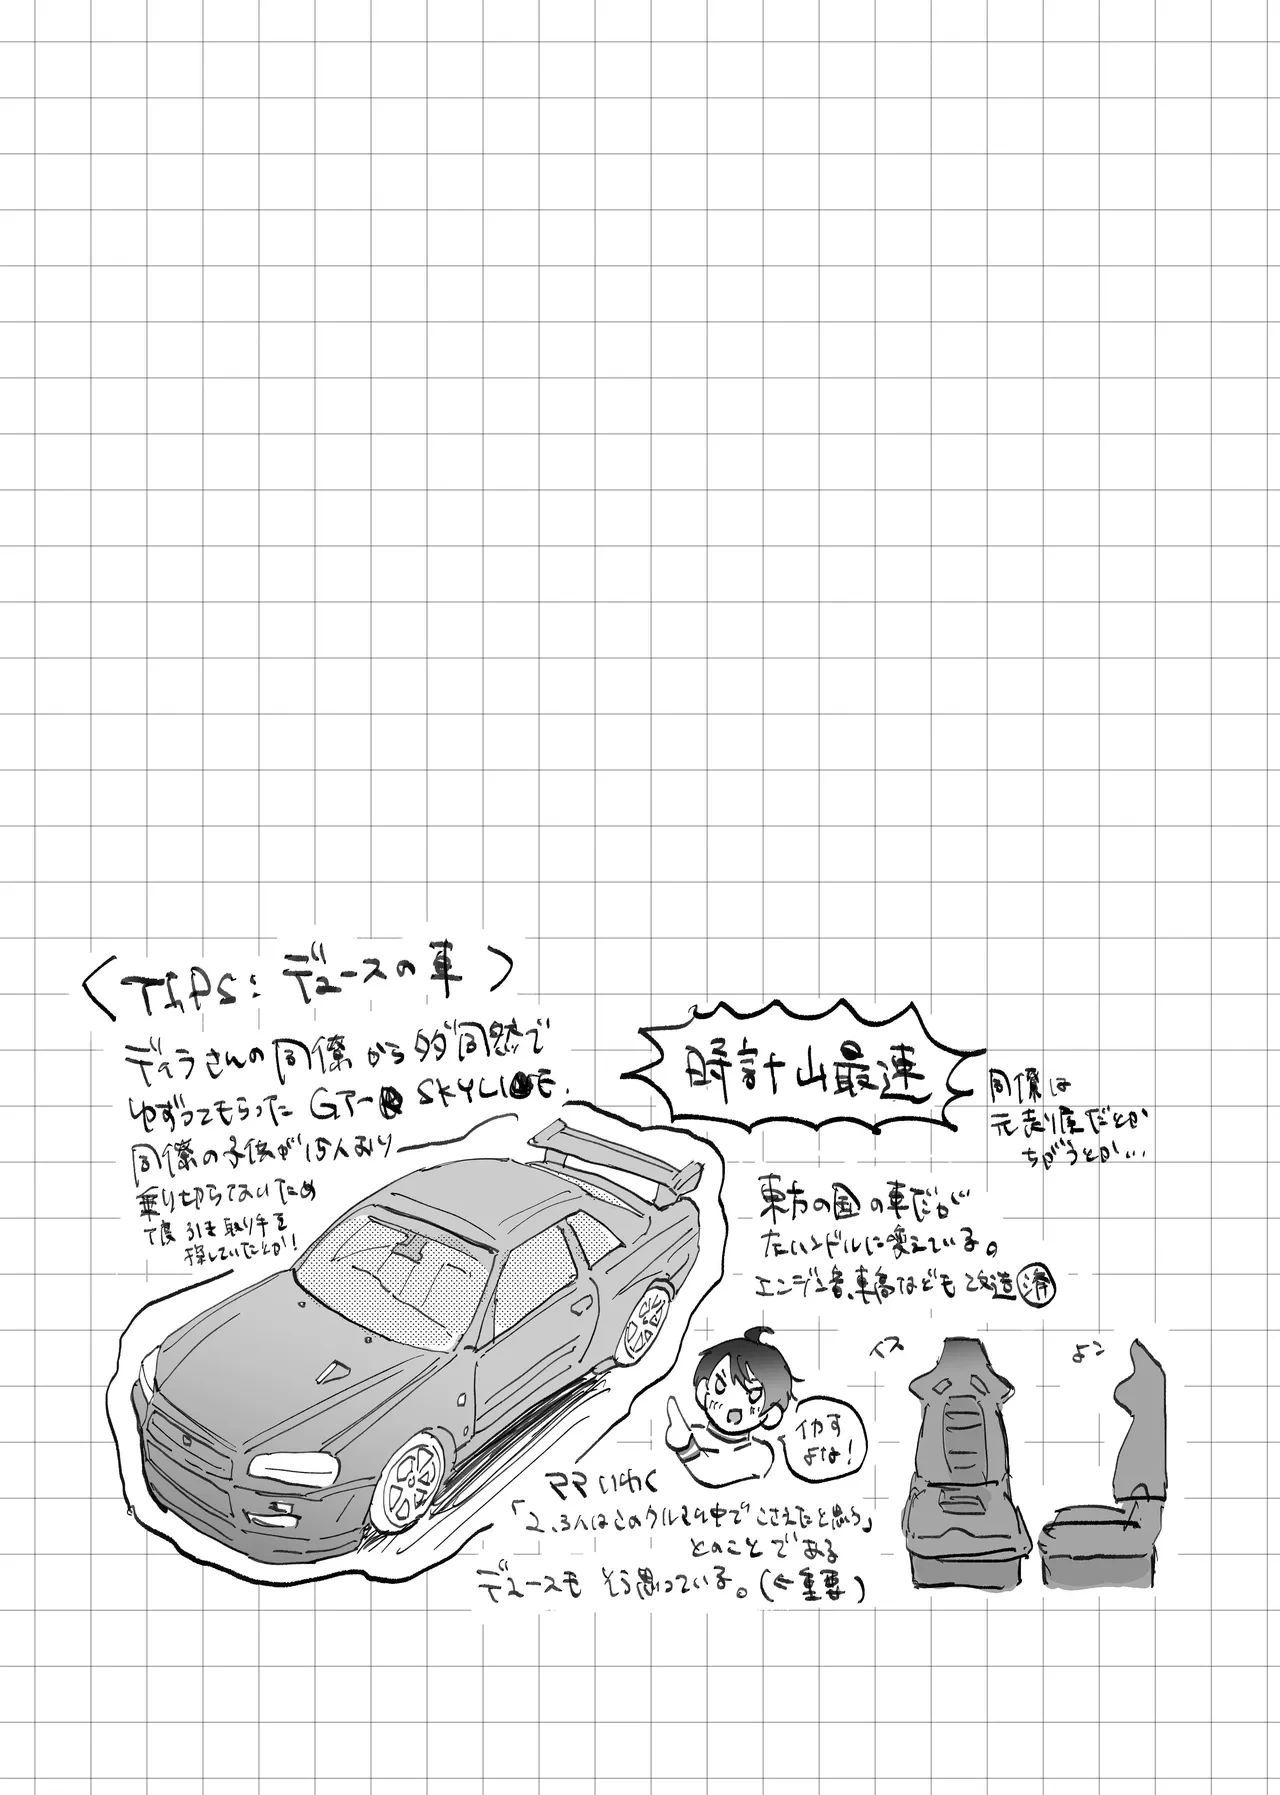 〈TIPS:デュースの車〉
ディラさんの同僚からタダ同然で
ゆずってもらったGT-R SKYLINE.
同僚の子供が15人おり
乗り切らないため
丁度引き取り手を
探していたとか!
時計山最速
同僚は
元走り屋だとか
ちがうとか…
東方の国の車だが
左ハンドルに変えている。
エンジン音、車高なども改造済
イス
よこ
イカす
よな!
ママいわく
「2、3人はこのクルマの中でこさえたと思う」
とのことである
デュースもそう思っている。(←重要)